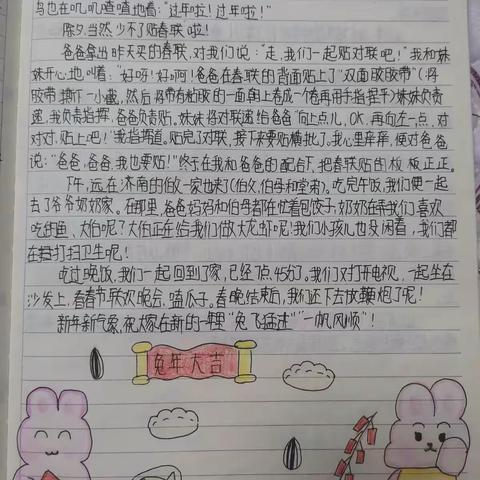 鸟也在叽叽喳喳地唱:“过年啦!过年啦!”
除夕,当然少不了贴春联啦!
爸爸拿出昨天买的春联,对我们说:“走,我们一起贴对联吧!”我和妹
妹开心地叫着:“好呀!好啊!爸爸在春联的背面贴上了“双面胶胶带”(将
胶带撕下一小截,然后将带有粘胶的一面朝上卷成一个卷再用手指捏平)妹妹负责
递,我负责指挥,爸爸负责贴。妹妹将对联递给爸爸“向上点儿,OK,再向左一点,对
对对,贴上吧!”我指挥道。贴完了对联,接下来要贴横批了。我心里痒痒,便对爸爸
说:“爸爸,爸爸,我也要贴!”终于在我和爸爸的配合下,把春联贴的板板正正。
下午,远在济南的伯父一家也来了(伯父,伯母和堂弟)。吃完午饭,我们便一起
去了爷爷奶奶家。在那里,爸爸妈妈和伯母都在忙着包饺子,奶奶在弄我们喜欢
吃的鱼,大伯呢?大伯正在给我们做大龙虾呢!我们小孩儿也没闲着,我们都
在打扫卫生呢!
吃过晚饭,我们一起回到了家,已经7点45分了,我们对打开电视,一起坐在
沙发上,看春节联欢晚会,嗑瓜子。春晚结束后,我们还下去放鞭炮了呢!
新年新气象,祝大家在新的一年里“兔飞猛进”“一帆风顺”!
兔年大吉